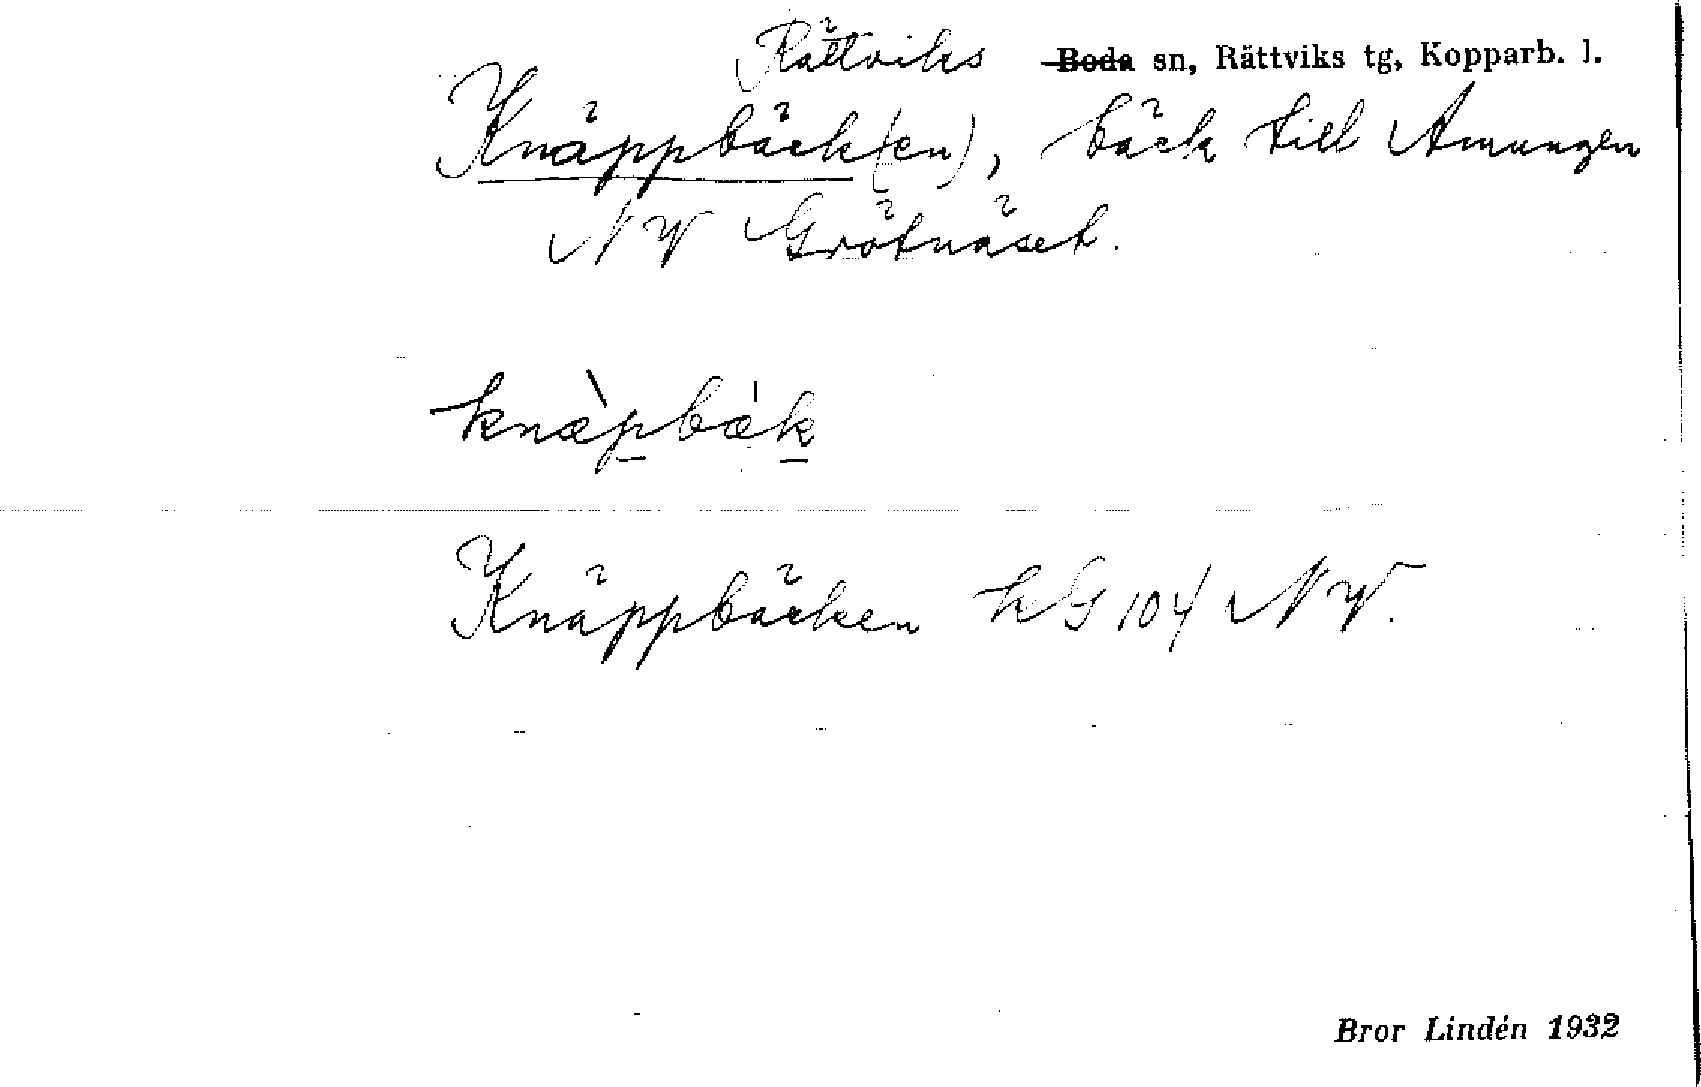 Rättviks ~~Boda~~ sn, Rättviks tg, Kopparb. l.
Knäppbäck(en), bäck till Amungen
NV Grötnäset.
knæ̀pbæ̍k
Knäppbäcken kG 104 NV.
Bror Lindén 1932